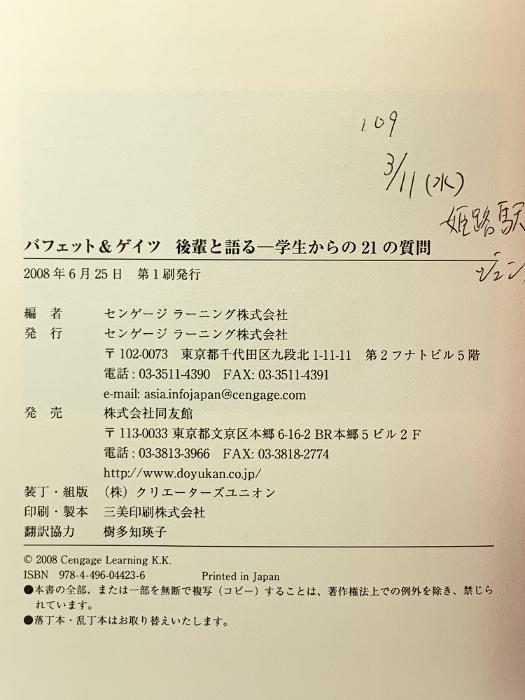 1.09
3/11(水)
姫路駅
ジュン
バフェット&ゲイツ 後輩と語る―学生からの21の質問
2008年6月25日 第1刷発行
編 者 センゲージ ラーニング株式会社
発 行 センゲージ ラーニング株式会社
〒102-0073 東京都千代田区九段北1-11-11 第2フナトビル5階
電話:03-3511-4390 FAX:03-3511-4391
e-mail: asia.infojapan@cengage.com
発 売 株式会社同友館
〒113-0033 東京都文京区本郷6-16-2 BR本郷5ビル2F
電話:03-3813-3966 FAX:03-3818-2774
http://www.doyukan.co.jp/
装丁・組版 (株)クリエーターズユニオン
印刷・製本 三美印刷株式会社
翻訳協力 樹多知瑛子
© 2008 Cengage Learning K.K.
ISBN 978-4-496-04423-6 Printed in Japan
●本書の全部、または一部を無断で複写(コピー)することは、著作権法上での例外を除き、禁じら
れています。
●落丁本・乱丁本はお取り替えいたします。